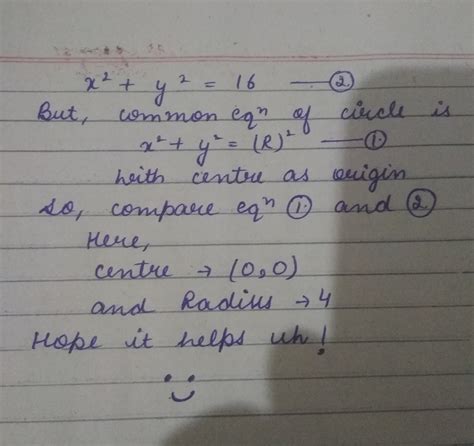 x² + y² = 16 —②
But, common eqⁿ of circle is
x² + y² = (R)² —①
with centre as origin
So, compare eqⁿ ① and ②
Here,
centre → (0,0)
and Radius → 4
Hope it helps uh!